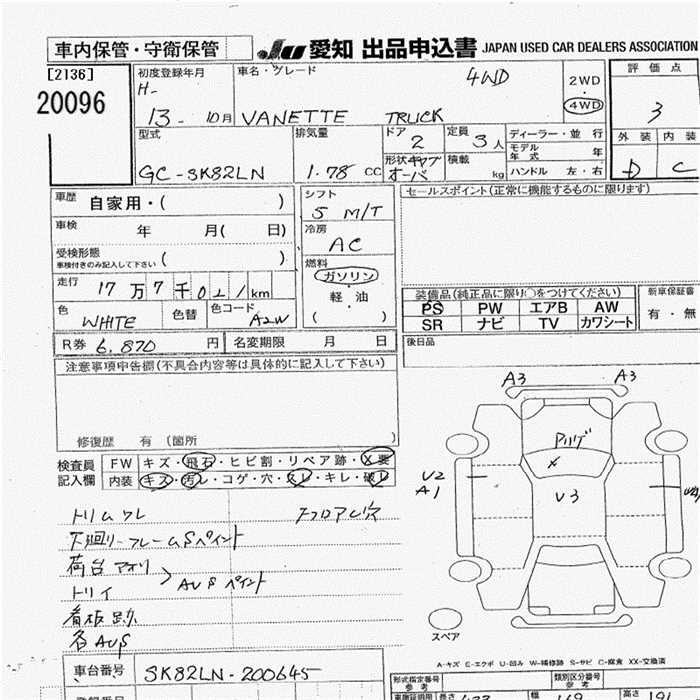 車内保管・守衛保管
JU 愛知 出品申込書 JAPAN USED CAR DEALERS ASSOCIATION
[2136]
20096
初度登録年月
H-
13 - 10月
車名・グレード
4WD
VANETTE TRUCK
2WD
・
4WD
評価点
3
外装 内装
D C
型式
GC-SK82LN
排気量
1.78 CC
ドア
2
定員
3人
形状 キャブオーバ
積載
kg
ディーラー・並 行
モデル年式 年
ハンドル 左・右
車歴 自家用・( )
車検 年 月( 日)
受検形態
車検付きのみ記入して下さい ( )
走行 17万7千021km
色
WHITE
色替
色コード
A2W
シフト
5 M/T
冷房
AC
燃料
ガソリン
・
軽・油
( )
セールスポイント(正常に機能するものに限ります)
装備品(純正品に限り○をつけてください)
PS PW エアB AW
SR ナビ TV カワシート
新車保証書
有・無
R券 6,870 円
名変期限 月 日
後日品
注意事項申告欄(不具合内容等は具体的に記入して下さい)
修復歴 有 (箇所 )
検査員
記入欄
FW キズ・飛石・ヒビ割・リペア跡・X要
内装 キズ・汚レ・コゲ・穴・スレ・キレ・破レ
トリムワレ フロアし穴
下廻リーフレームSペイント
荷台アオリ
トリイ > AUSペイント
看板跡
各AUS
A3 A3
U2
A1
X
U3
スペア
A-キズ E-エクボ U-凹み W-補修跡 S-サビ C-腐食 XX-交換済
車台番号 SK82LN-200645
形式指定番号
参考
類別区分番号
参考
長さ
幅 169
高さ 191